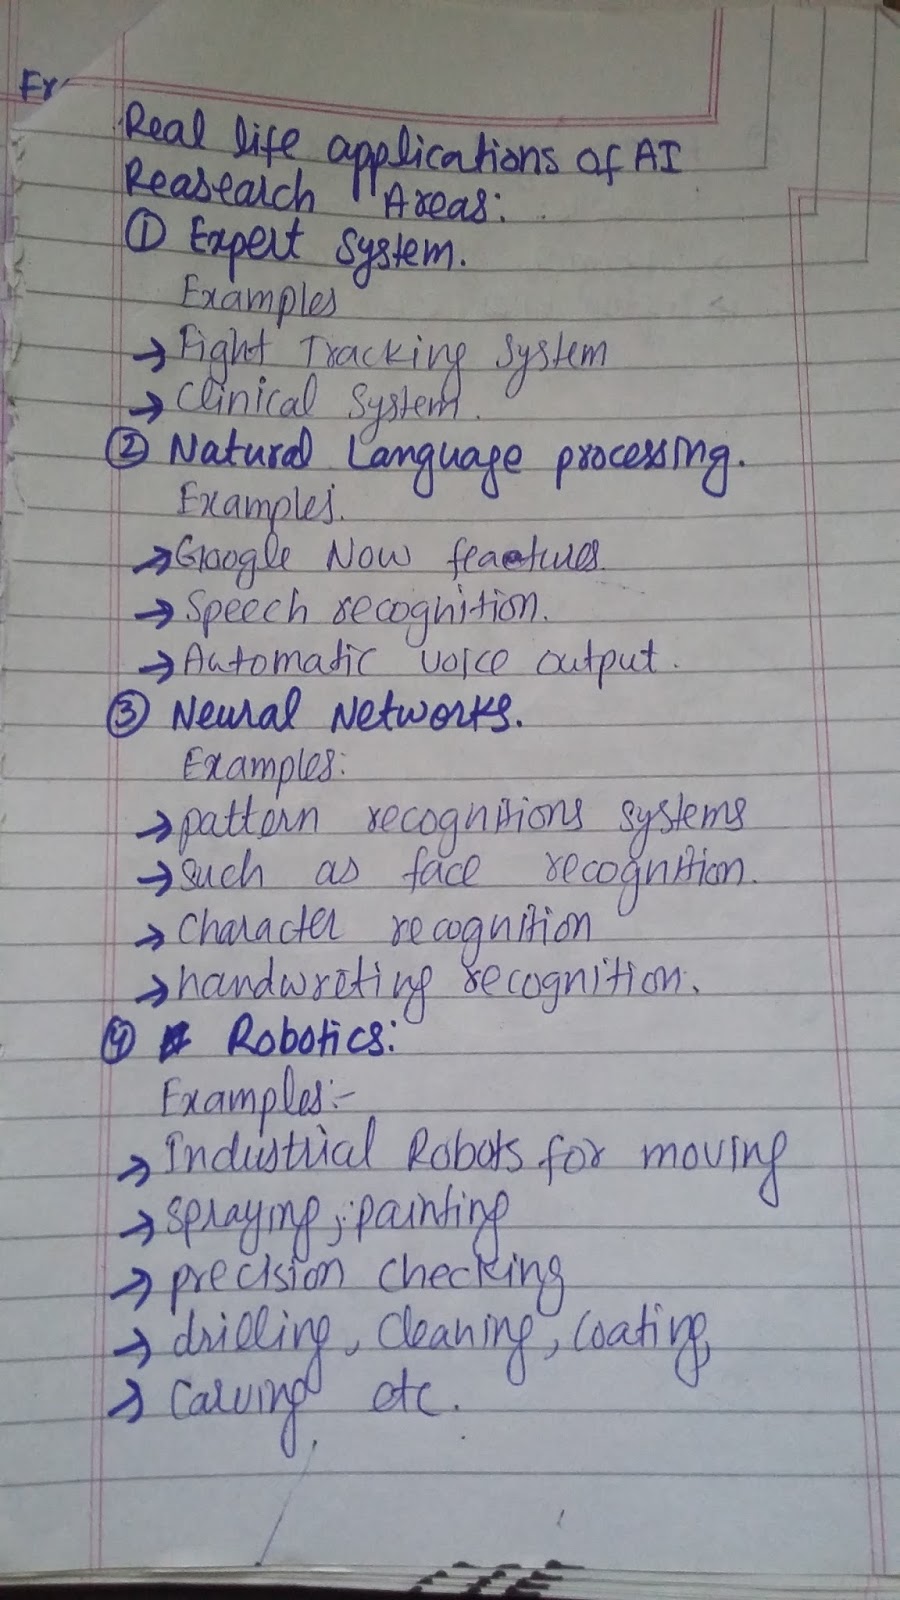 Real life applications of AI
Reasearch Areas:
① Expert System.
Examples
→ Fight Tracking System
→ Clinical System.
② Natural Language processing.
Examples.
→ Google Now featues.
→ Speech recognition.
→ Automatic voice output.
③ Neural Networks.
Examples:
→ pattern recognitions systems
→ such as face recognition.
→ Character recognition
→ handwreting recognition.
④ Robotics:
Examples:-
→ Industrial Robots for moving
→ spraying, painting
→ precision checking
→ drilling, cleaning, coating,
→ Carving etc.